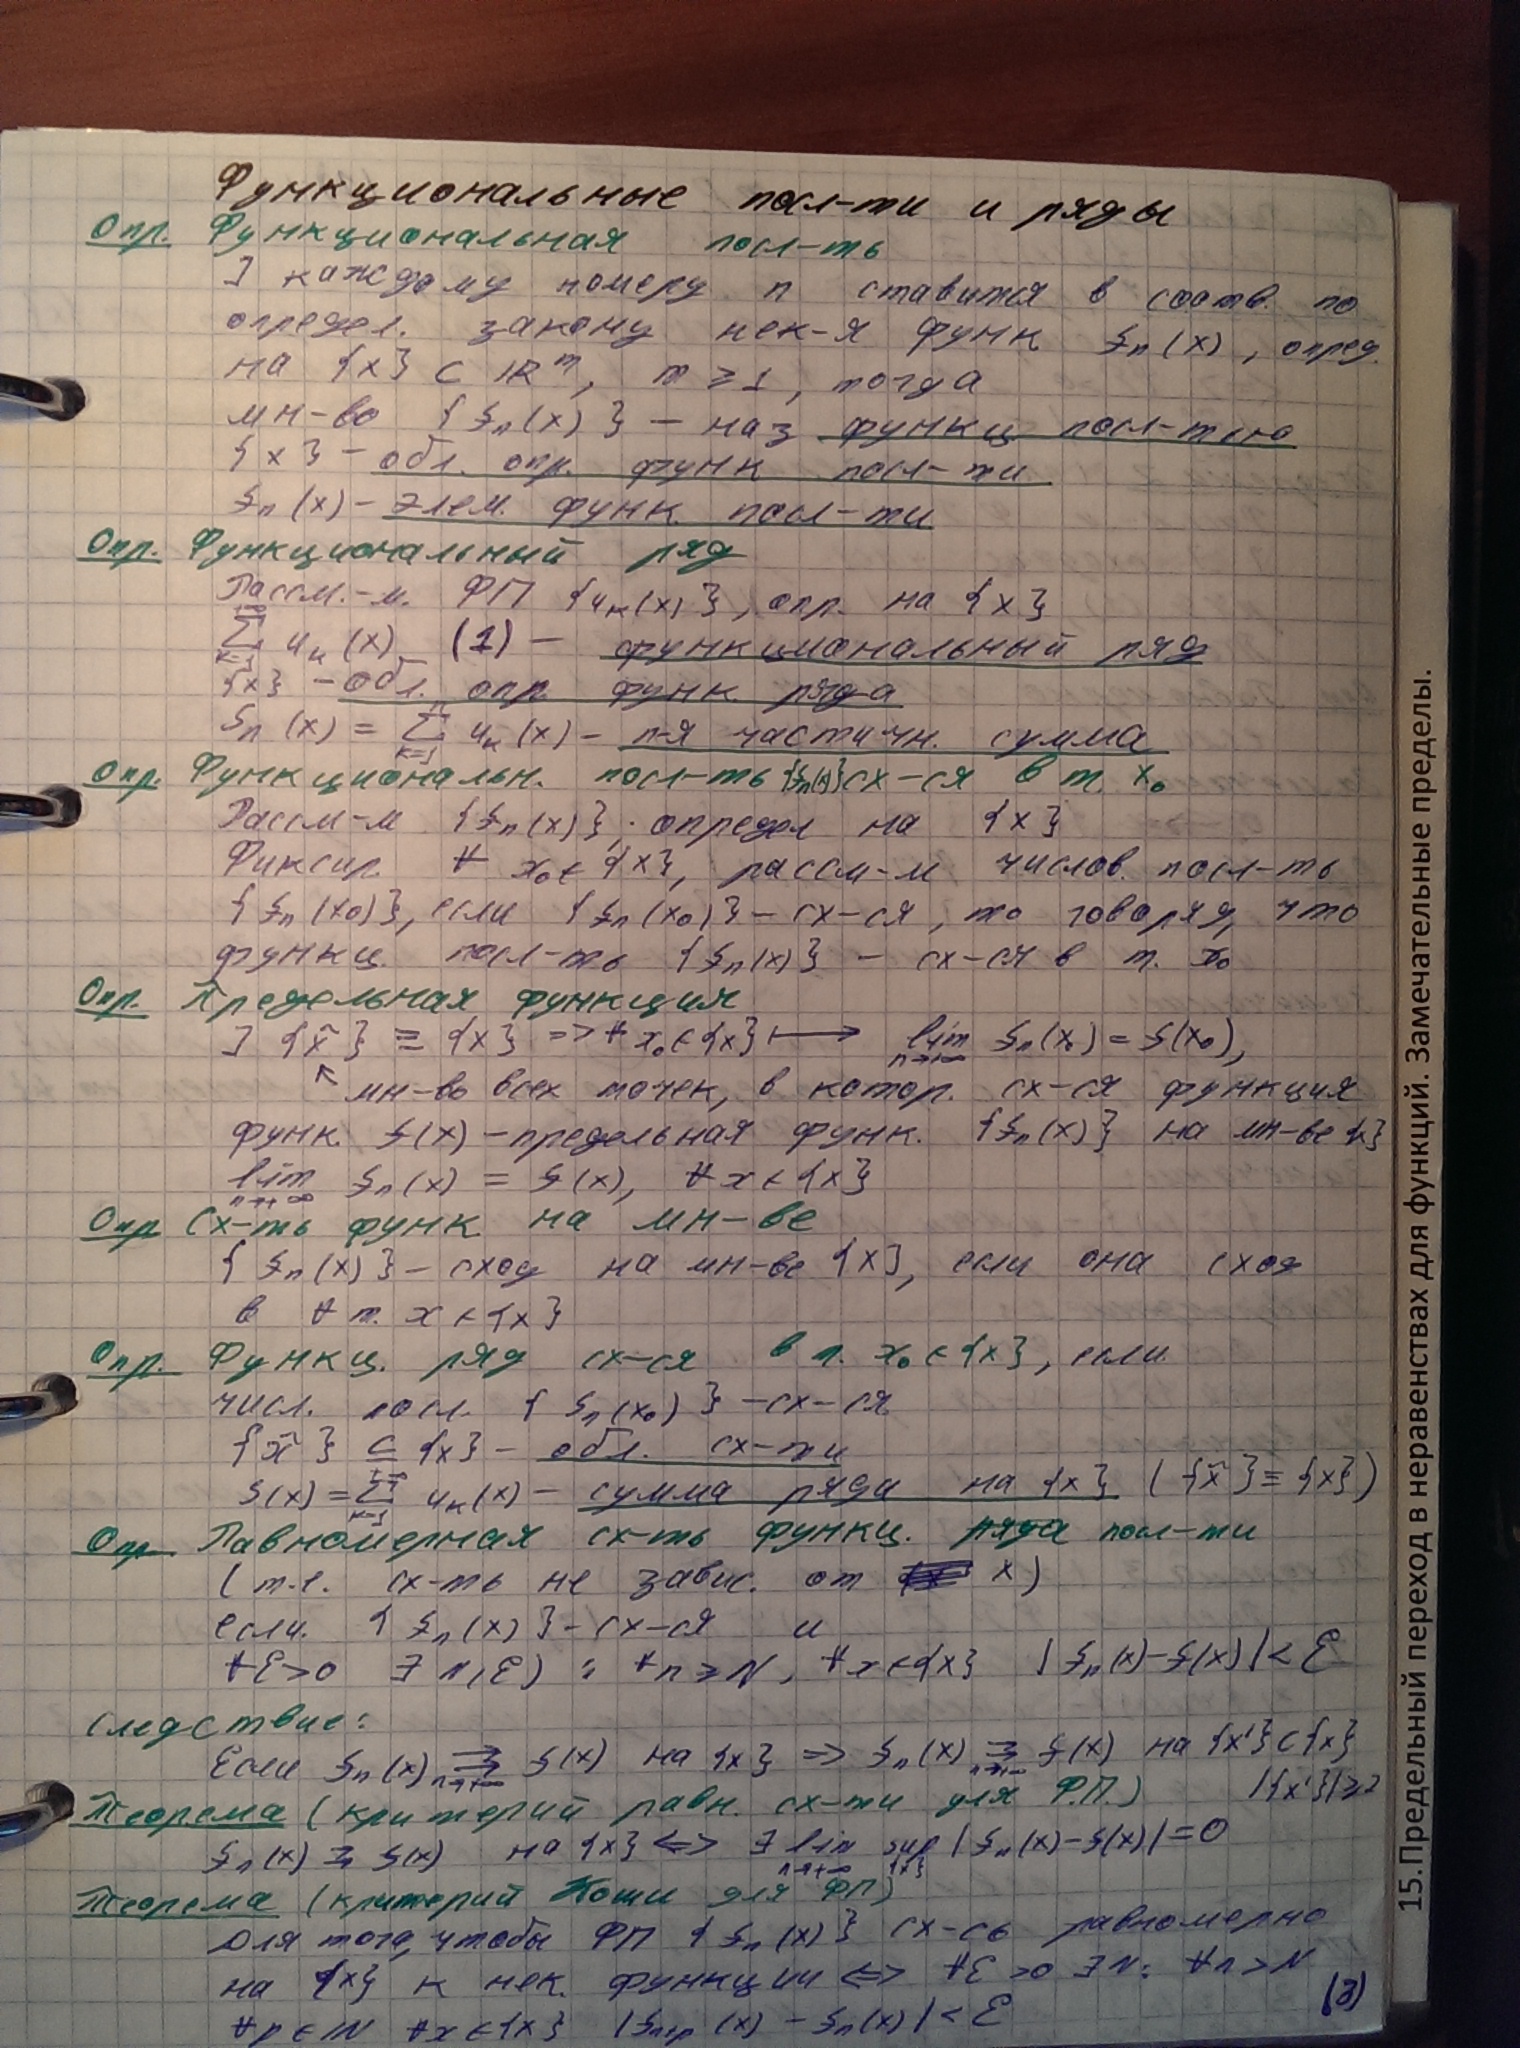 Функциональные посл-ти и ряды
Опр. Функциональная посл-ть
] каждому номеру n ставится в соотв. по
определ. закону нек-я функ fₙ(x), опред.
на {x} ⊂ ℝᵐ, m ≥ 1, тогда
мн-во {fₙ(x)} – наз функц посл-тью
{x} – обл. опр. функ посл-ти
fₙ(x) – элем. функ. посл-ти
Опр. Функциональный ряд
Рассм.-м. ФП {uₖ(x)}, опр. на {x}
∑ₖ₌₁^{+∞} uₖ(x) (1) – функциональный ряд
{x} – обл. опр функ. ряда
Sₙ(x) = ∑ₖ₌₁ⁿ uₖ(x) – n-я частичн. сумма
Опр. Функциональн. посл-ть {fₙ(x)} сх-ся в т. x₀
Рассм-м {fₙ(x)}, определ на {x}
Фиксир. ∀ x₀ ∈ {x}, рассм-м числов. посл-ть
{fₙ(x₀)}, если {fₙ(x₀)} – сх-ся, то говорят, что
функц. посл-ть {fₙ(x)} – сх-ся в т. x₀
Опр. Предельная функция
] {x̃} ≡ {x} => ∀ x₀ ∈ {x} ⟼ lim_{n→+∞} fₙ(x₀) = f(x₀),
↖ мн-во всех точек, в котор. сх-ся функция
функ. f(x) – предельная функ. {fₙ(x)} на мн-ве {x}
lim_{n→+∞} fₙ(x) = f(x), ∀ x ∈ {x}
Опр Сх-ть функ на мн-ве
{fₙ(x)} – сход на мн-ве {x}, если она сход
в ∀ т. x ∈ {x}
Опр. Функц. ряд сх-ся в т. x₀ ∈ {x}, если
числ. посл. {Sₙ(x₀)} – сх-ся
{x̃} ⊆ {x} – обл. сх-ти
S(x) = ∑ₖ₌₁^{+∞} uₖ(x) – сумма ряда на {x} ({x̃} ≡ {x})
Опр Равномерная сх-ть функц. ряда посл-ти
(т.е. сх-ть не завис. от x)
если {fₙ(x)} – сх-ся и
∀ε>0 ∃ N(ε) : ∀n ≥ N, ∀x ∈ {x} |fₙ(x) – f(x)| < ε
Следствие:
Если fₙ(x) ⇉_{n→+∞} f(x) на {x} => fₙ(x) ⇉_{n→+∞} f(x) на {x'} ⊂ {x}
Теорема (критерий равн. сх-ти для Ф.П.) |{x'}| ≥ 2
fₙ(x) ⇉ f(x) на {x} <=> ∃ lim_{n→+∞} sup_{{x}} |fₙ(x) – f(x)| = 0
Теорема (критерий Коши для ФП)
Для того, чтобы ФП {fₙ(x)} сх-сь равномерно
на {x} к нек. функции <=> ∀ε > 0 ∃N: ∀n > N
∀p ∈ ℕ ∀x ∈ {x} |fₙ₊ₚ(x) – fₙ(x)| < ε
(3)
15.Предельный переход в неравенствах для функций. Замечательные пределы.